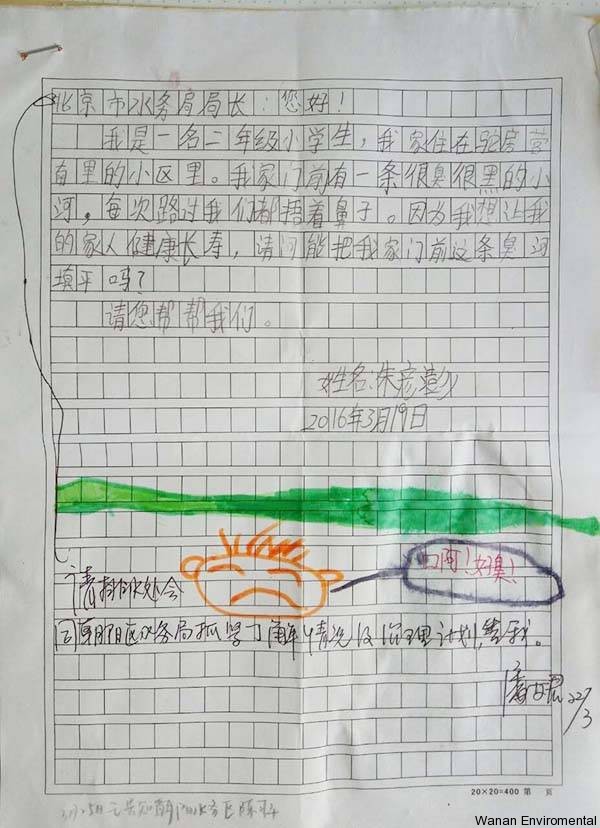 北京市水务局局长：您好！
我是一名二年级小学生，我家住在驼房营
南里的小区里。我家门前有一条很臭很黑的小
河，每次路过我们都捂着鼻子。因为我想让我
的家人健康长寿，请问能把我家门前这条臭河
填平吗？
请您帮帮我们。
姓名：朱彦澎
2016年3月19日
啊！好臭！
请排水处会
同朝阳区水务局抓紧了解情况及治理计划，告我。
22/3
20×20=400 第 页
Wanan Enviromental